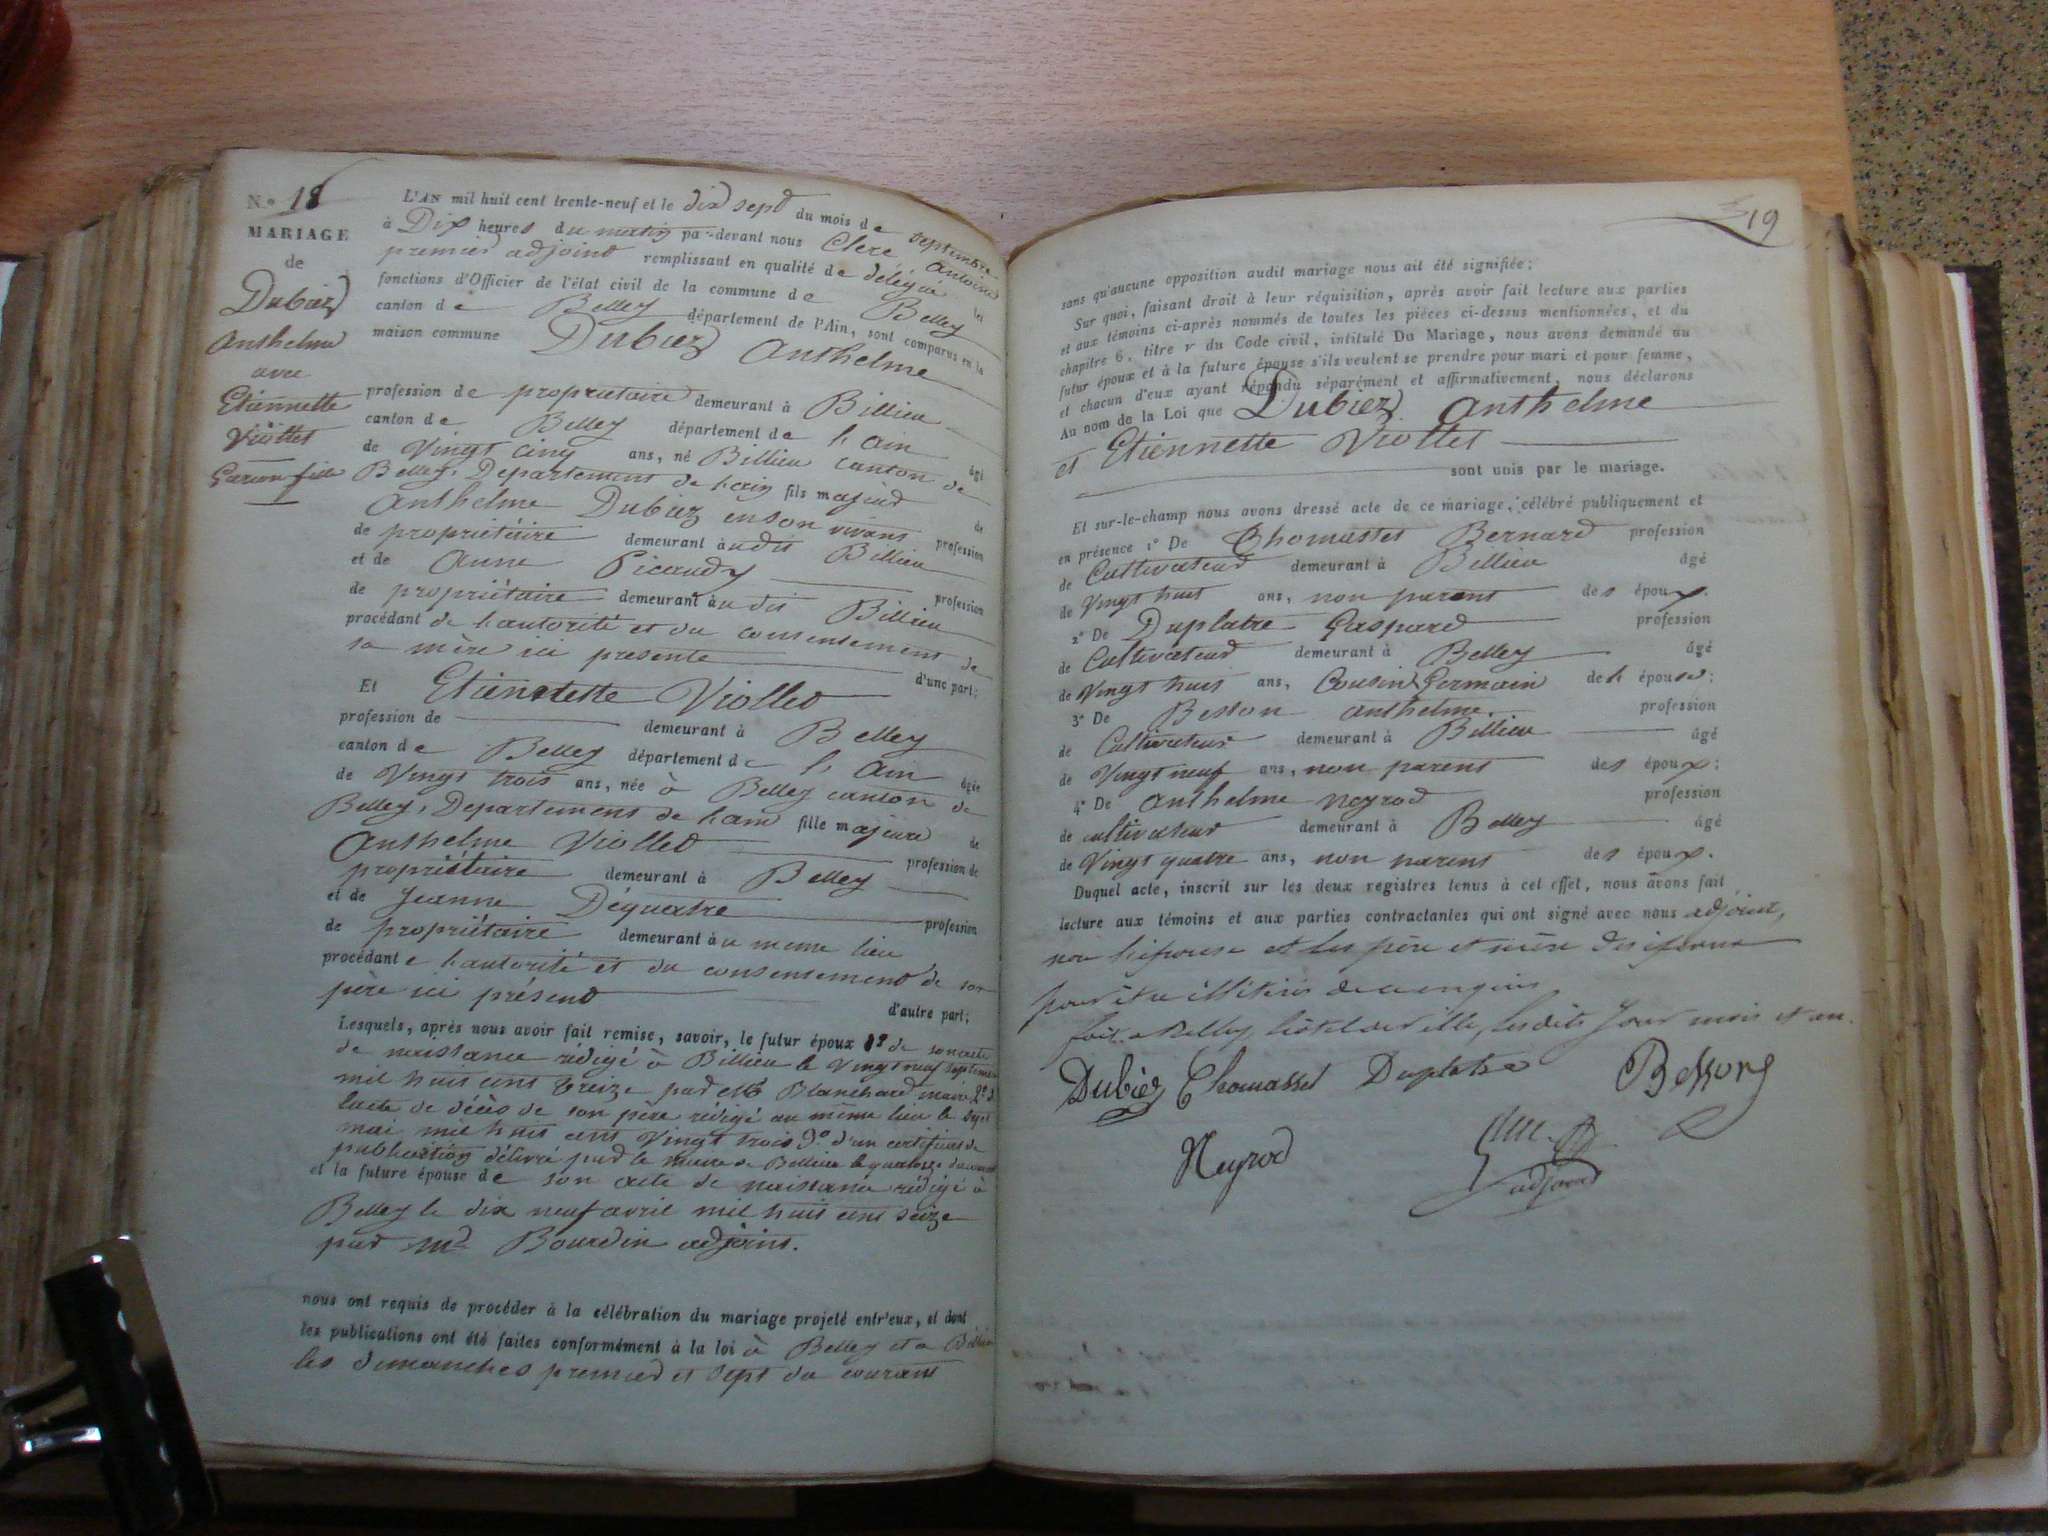 N.° 18
MARIAGE
de
Dubiez
Anthelme
avec
Etiennette
Viollet
Garçon fille
L'AN mil huit cent trente-neuf et le dix sept du mois de septembre
à Dix heures du matin par-devant nous Clerc Antoine
premier adjoint remplissant en qualité de délégué les
fonctions d'Officier de l'état civil de la commune de Belley
canton de Belley département de l'Ain, sont comparus en la
maison commune Dubiez Anthelme
profession de propriétaire demeurant à Billieu
canton de Belley département de l'ain âgé
de Vingt cinq ans, né Billieu canton de
Belley, Departement de l'ain fils majeur de
Anthelme Dubiez en son vivant profession
de propriétaire demeurant audit Billieu
et de Anne Picaudy profession
de propriétaire demeurant audit Billieu
procédant de l'autorité et du consentement de
sa mère ici presente d'une part;
Et Etiennette Viollet
profession de demeurant à Belley
canton de Belley département de l'Ain âgée
de Vingt trois ans, née à Belley canton de
Belley, Departement de l'ain fille majeure de
Anthelme Viollet profession de
propriétaire demeurant à Belley
et de Jeanne Déquatre profession
de propriétaire demeurant au meme lieu
procédant e l'autorité et du consentement de son
père ici présent d'autre part;
Lesquels, après nous avoir fait remise, savoir, le futur époux 1° de son acte
de naissance rédigé à Billieu le Vingt neuf septembre
mil huit cent treize par Blanchard maire 2° d
l'acte de décès de son père rédigé au même lieu le sept
mai mil huit cent vingt trois 3° d'un certificat de
publication délivré par le maire de Billieu le quatorze du courant
et la future épouse de son acte de naissance rédigé à
Belley le dix neuf avril mil huit cent seize
par Mr Bourdin adjoint.
nous ont requis de procéder à la célébration du mariage projeté entr'eux, et dont
les publications ont été faites conformément à la loi à Belley et a Billieu
les dimanches premier et sept du courant
19
sans qu'aucune opposition audit mariage nous ait été signifiée;
Sur quoi, faisant droit à leur réquisition, après avoir fait lecture aux parties
et aux témoins ci-après nommés de toutes les pièces ci-dessus mentionnées, et du
chapitre 6, titre v du Code civil, intitulé Du Mariage, nous avons demandé au
futur époux et à la future épouse s'ils veulent se prendre pour mari et pour femme,
et chacun d'eux ayant répondu séparément et affirmativement, nous déclarons
Au nom de la Loi que Dubiez Anthelme
et Etiennette Viollet
sont unis par le mariage.
Et sur-le-champ nous avons dressé acte de ce mariage, célébré publiquement et
en présence 1° De Thomasset Bernard profession
de Cultivateur demeurant à Billieu âgé
de Vingt huit ans, non parent des époux.
2° De Duplatre Gaspard profession
de Cultivateur demeurant à Belley âgé
de Vingt huit ans, Cousin Germain de l'épouse;
3° De Besson Anthelme profession
de Cultivateur demeurant à Billieu âgé
de Vingt neuf ans, non parent des époux;
4° De Anthelme Neyrod profession
de cultivateur demeurant à Belley âgé
de Vingt quatre ans, non parent des époux.
Duquel acte, inscrit sur les deux registres tenus à cet effet, nous avons fait
lecture aux témoins et aux parties contractantes qui ont signé avec nous adjoint,
non l'épouse et les père et mère des époux
pour être illitérés de ce enquis
fait a Belley, hôtel de ville, les dits jour mois et an.
Dubiez Thomasset Duplatre Bessong
Neyrod
adjoint